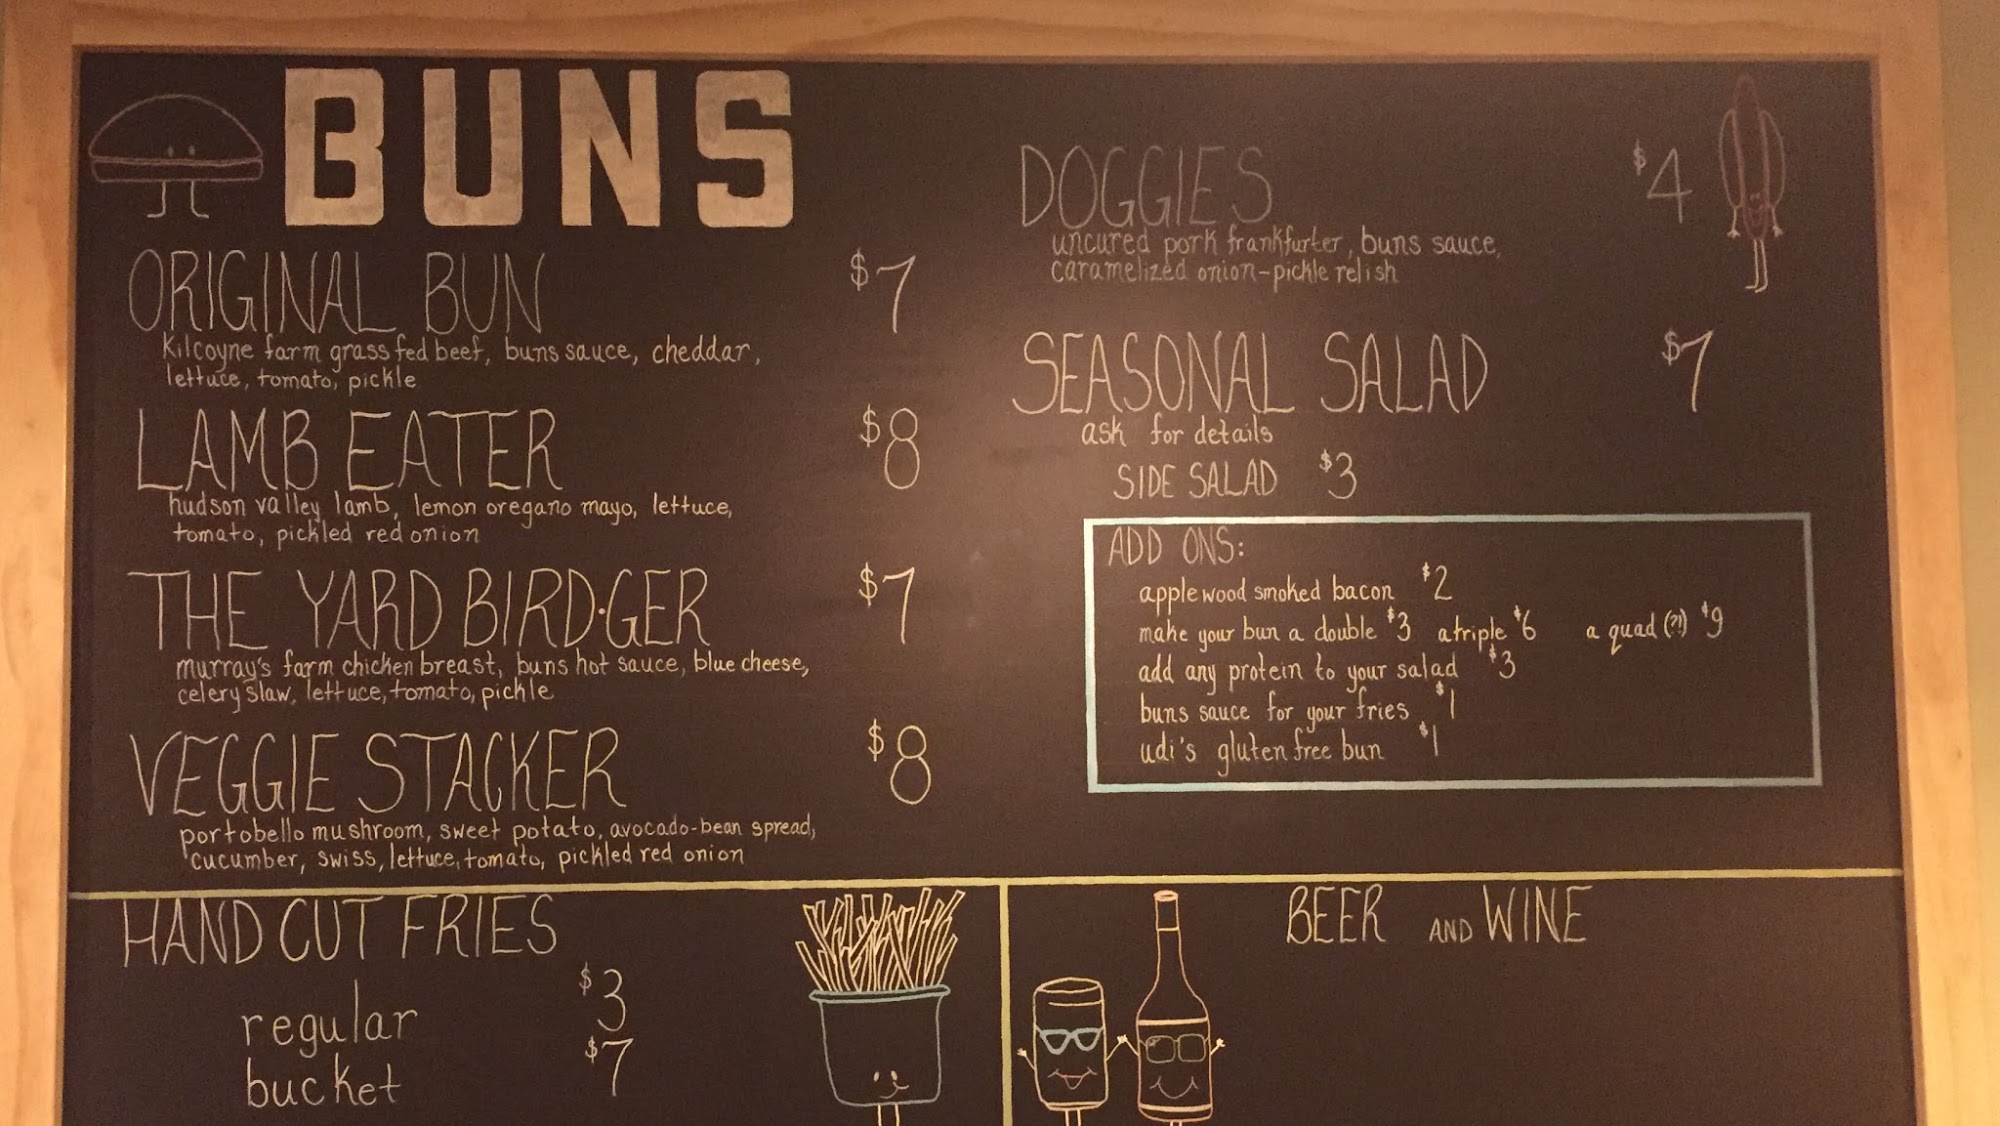 BUNS
ORIGINAL BUN $7
Kilcoyne farm grass fed beef, buns sauce, cheddar,
lettuce, tomato, pickle
LAMB EATER $8
hudson valley lamb, lemon oregano mayo, lettuce,
tomato, pickled red onion
THE YARD BIRD·GER $7
murray's farm chicken breast, buns hot sauce, blue cheese,
celery slaw, lettuce, tomato, pickle
VEGGIE STACKER $8
portobello mushroom, sweet potato, avocado-bean spread,
cucumber, swiss, lettuce, tomato, pickled red onion
DOGGIES $4
uncured pork frankfurter, buns sauce,
caramelized onion-pickle relish
SEASONAL SALAD $7
ask for details
SIDE SALAD $3
ADD ONS:
applewood smoked bacon $2
make your bun a double $3 a triple $6 a quad (?!) $9
add any protein to your salad $3
buns sauce for your fries $1
udi's gluten free bun $1
HAND CUT FRIES
regular $3
bucket $7
BEER AND WINE